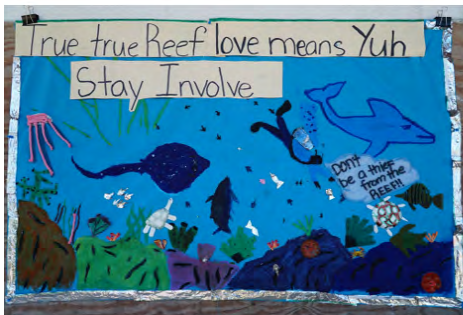 True true Reef love means Yuh
Stay Involve
Don't
be a thief
from the
REEF!!